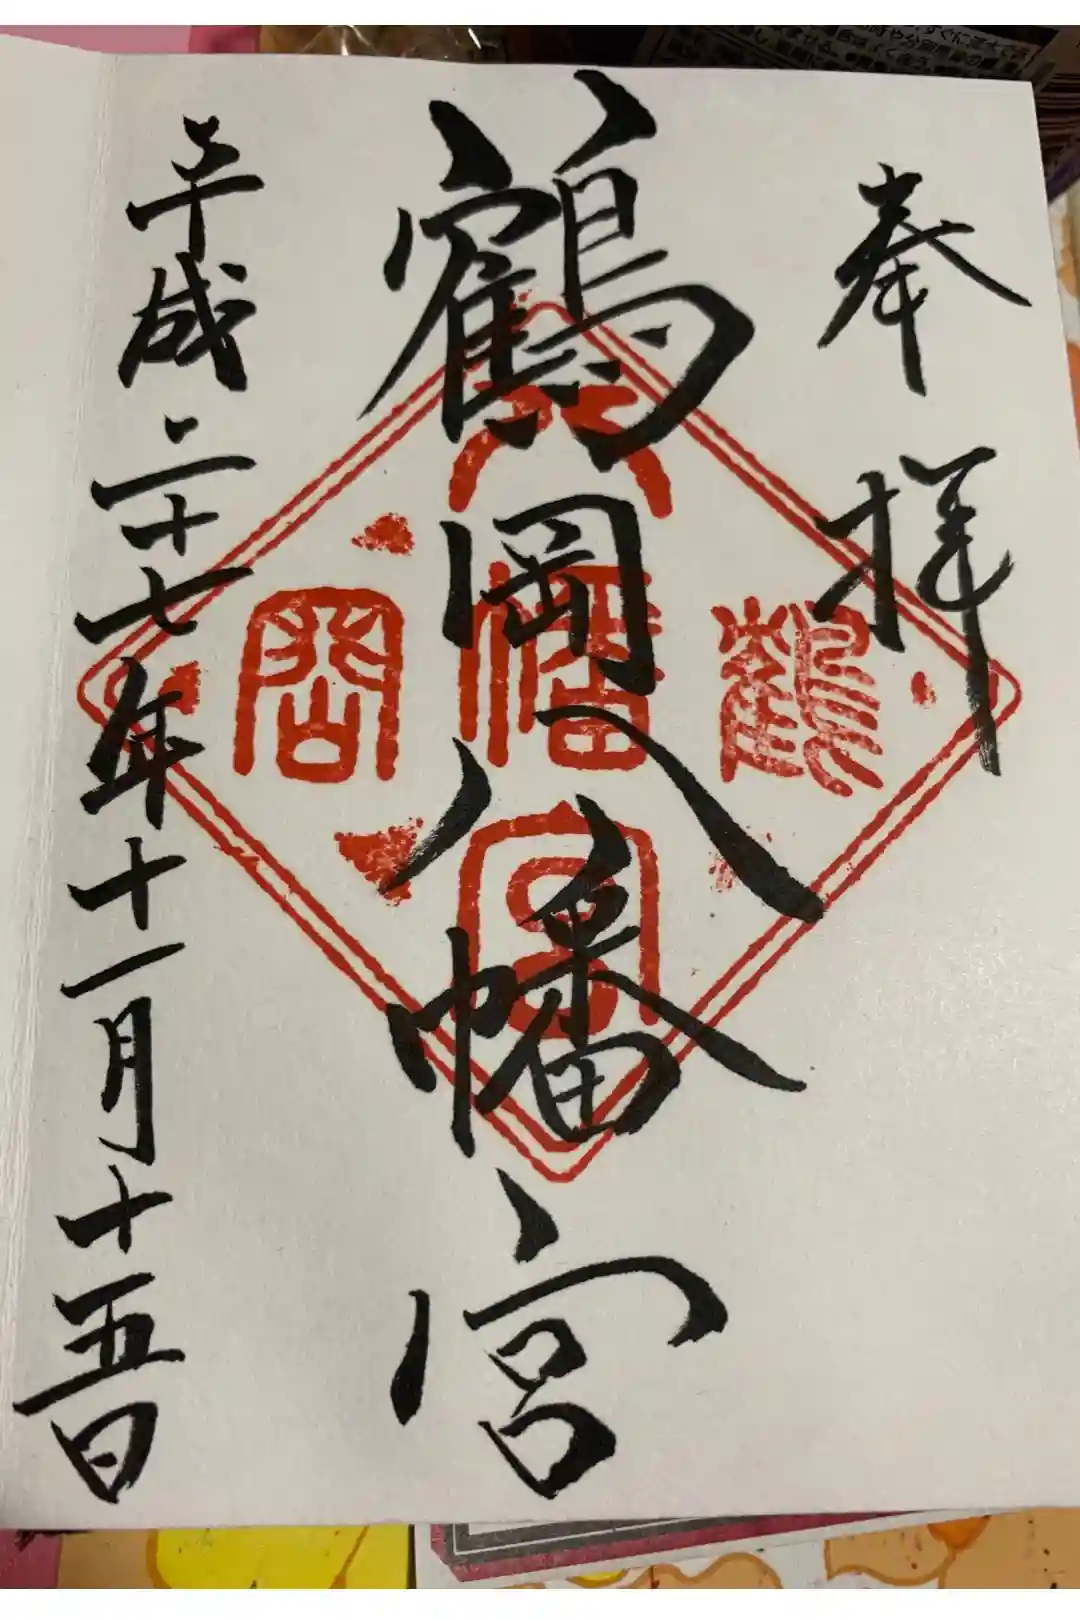 奉拝
鶴岡八幡宮
平成二十七年十一月十五日
鶴
岡
八
幡
宮